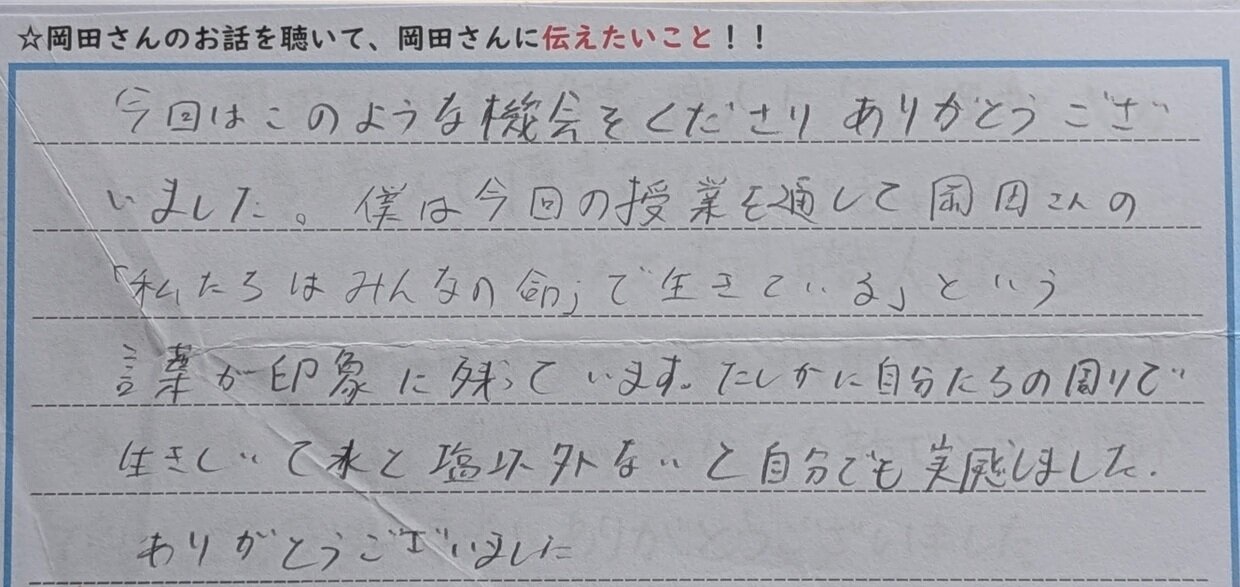 ☆岡田さんのお話を聴いて、岡田さんに伝えたいこと!!
今回はこのような機会をくださりありがとうござ
いました。僕は今回の授業を通して岡田さんの
「私たちはみんなの命」で生きている」という
言葉が印象に残っています。たしかに自分たちの周りで
生きしいて水と塩以外ないと自分でも実感しました.
ありがとうございました